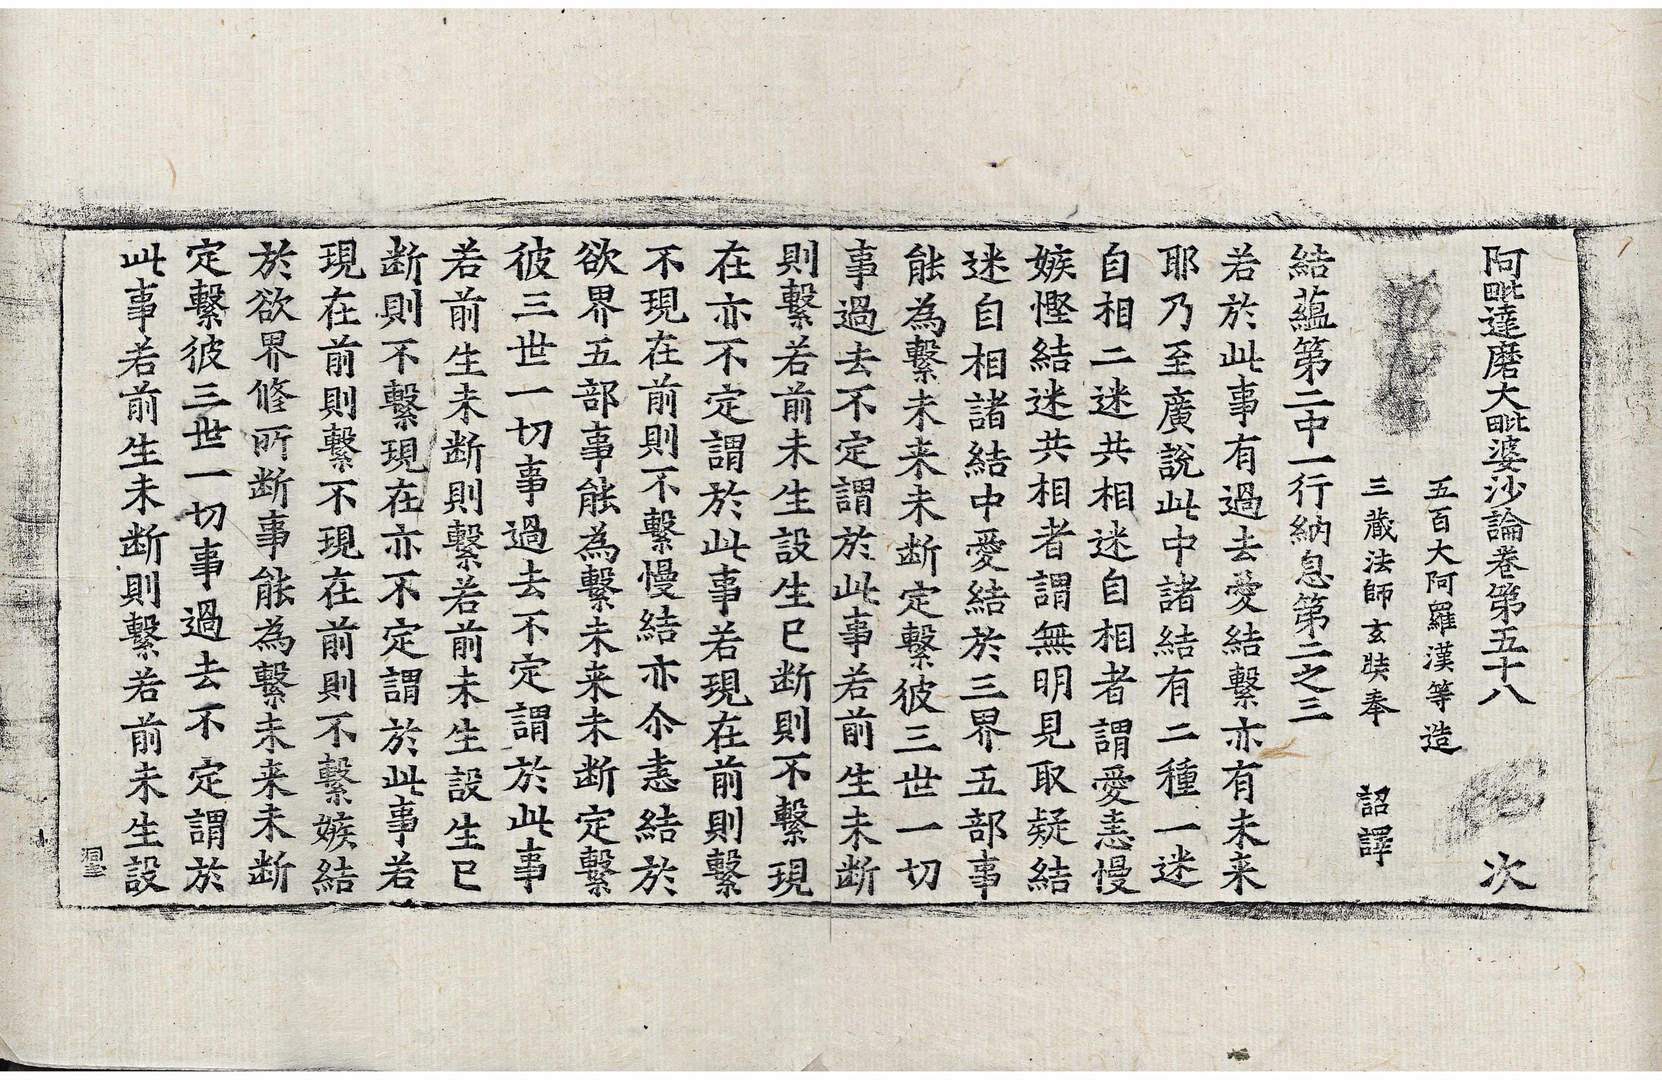 阿毗達磨大毗婆沙論卷第五十八 次
五百大阿羅漢等造
三藏法師玄奘奉 詔譯
結蘊第二中一行納息第二之三
若於此事有過去愛結繫亦有未来
耶乃至廣說此中諸結有二種一迷
自相二迷共相迷自相者謂愛恚慢
嫉慳結迷共相者謂無明見取疑結
迷自相諸結中愛結於三界五部事
能為繫未来未断定繫彼三世一切
事過去不定謂於此事若前生未断
則繫若前未生設生已断則不繫現
在亦不定謂於此事若現在前則繫
不現在前則不繫慢結亦尒恚結於
欲界五部事能為繫未来未断定繫
彼三世一切事過去不定謂於此事
若前生未断則繫若前未生設生已
断則不繫現在亦不定謂於此事若
現在前則繫不現在前則不繫嫉結
於欲界修所断事能為繫未来未断
定繫彼三世一切事過去不定謂於
此事若前生未断則繫若前未生設